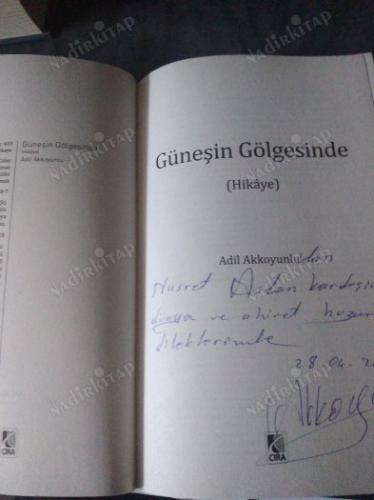 Güneşin Gölgesinde
(Hikâye)
Adil Akkoyunlu
Güneşin Gölgesinde
(Hikâye)
Adil Akkoyunlu'dan
Nusret Aslan kardeşim
dünya ve ahiret huzur
dileklerimle
28.04.20
Akkoyu
CIRA
CIRA
NADİRKİTAP